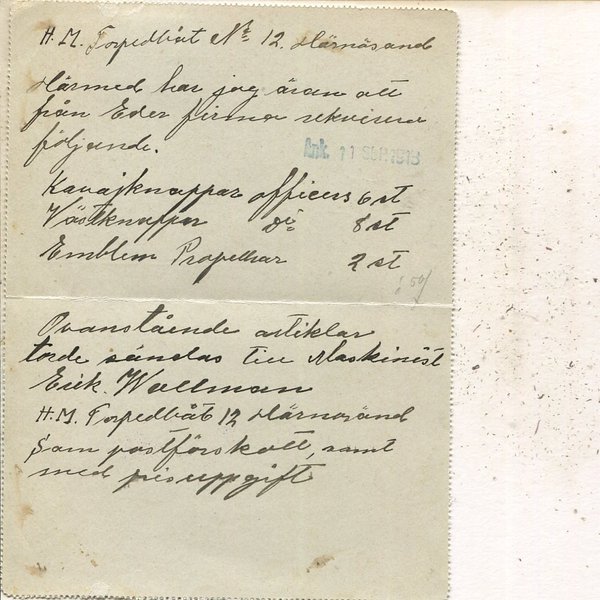 H. M. Torpedbåt No 12. Härnösand
Härmed har jag äran att
från Eder firma rekvirera
följande.
Ank. 11 SEP. 1918
Kavajknappar officers 6 st
Västknappar do 8 st
Emblem Propellrar 2 st
Ovanstående artiklar
torde sändas till Maskinist
Erik. Wallman
H. M. Torpedbåt 12 Härnösand
Som postförskott, samt
med prisuppgift